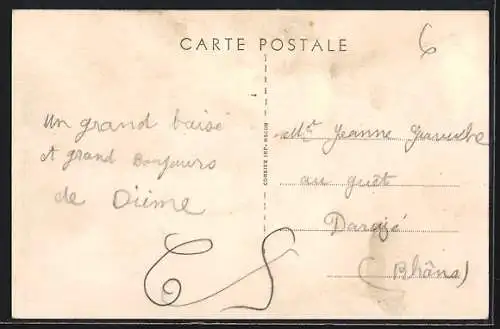 CARTE POSTALE
6
un grand baisé
et grand Bonjours
de Dième
Jeanne
au guêt
Dareizé
(Rhône)
COMBIER IMP. MACON